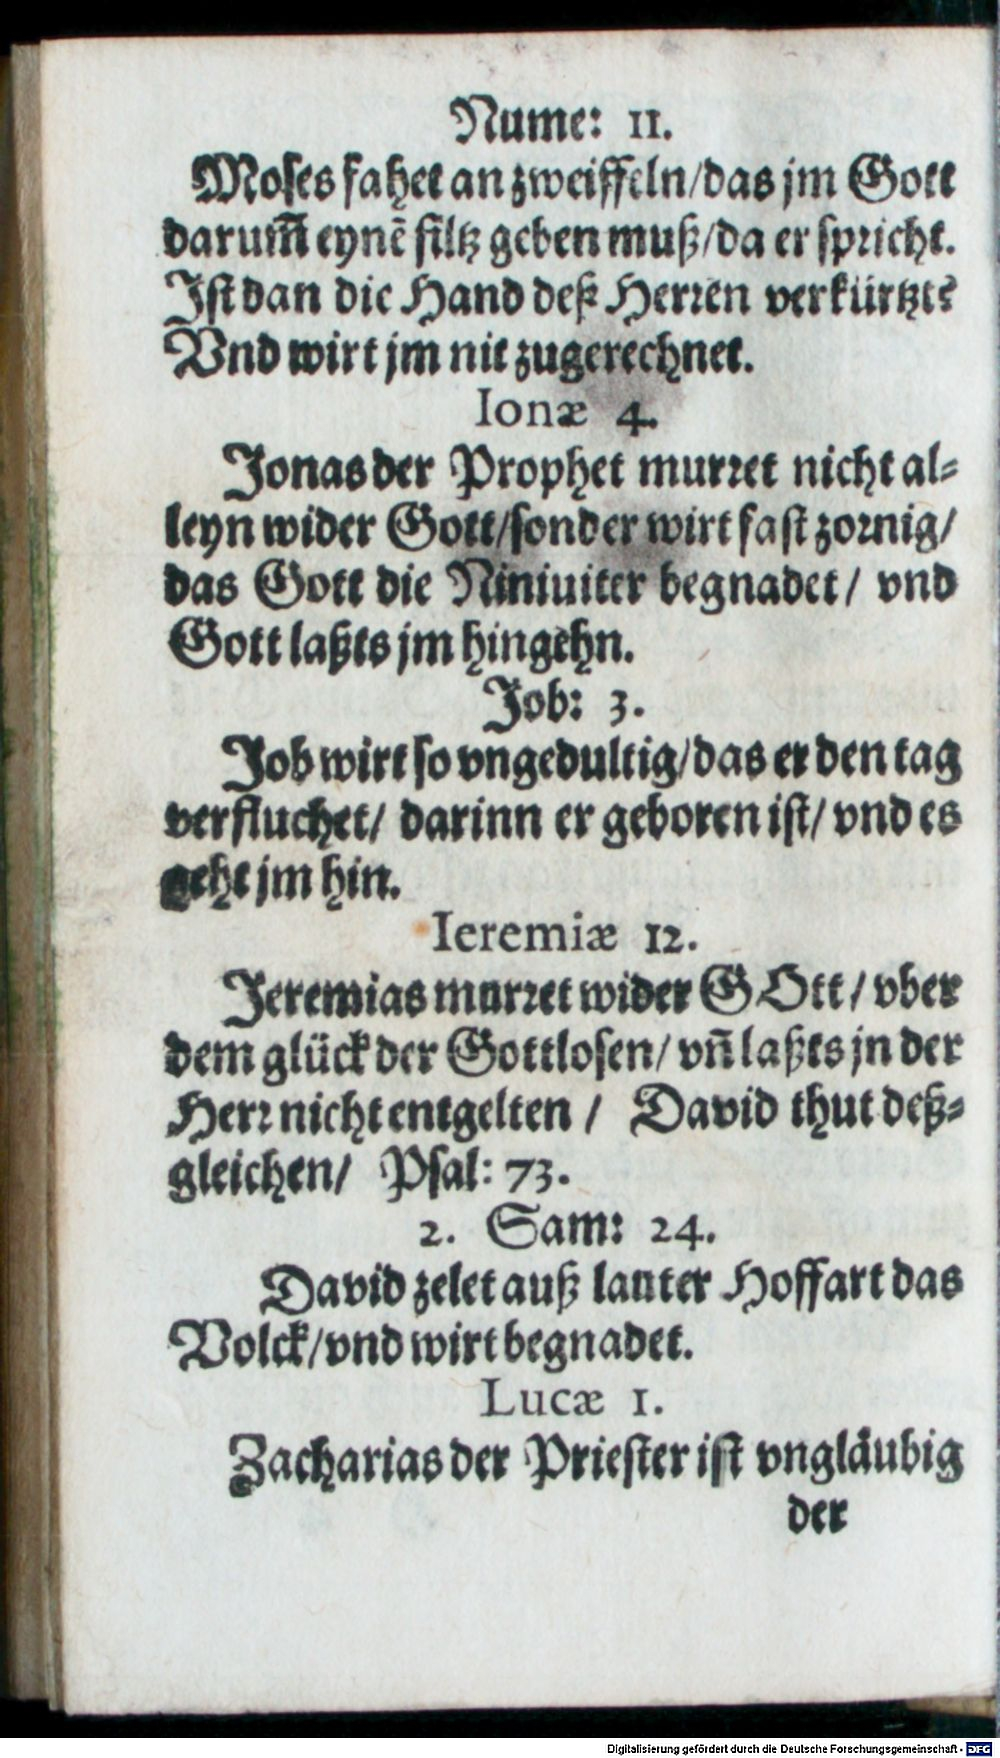 Nume: 11.
Moses fahet an zweiffeln/das jm Gott
darum̄ eynē filtz geben muß/da er spricht.
Ist dan die Hand deß Herren verkürtzt?
Vnd wirt jm nit zugerechnet.
Ionæ 4.
Jonas der Prophet murret nicht al-
leyn wider Gott/sonder wirt fast zornig/
das Gott die Niniuiter begnadet/ vnd
Gott laßts jm hingehn.
Job: 3.
Job wirt so vngedultig/das er den tag
verfluchet/ darinn er geboren ist/ vnd es
geht jm hin.
Ieremiæ 12.
Jeremias murret wider GOtt/ vber
dem glück der Gottlosen/ vn̄ laßts jn der
Herr nicht entgelten / David thut deß-
gleichen/ Psal: 73.
2. Sam: 24.
David zelet auß lauter Hoffart das
Volck/vnd wirt begnadet.
Lucæ 1.
Zacharias der Priester ist vngläubig
der
Digitalisierung gefördert durch die Deutsche Forschungsgemeinschaft - DFG